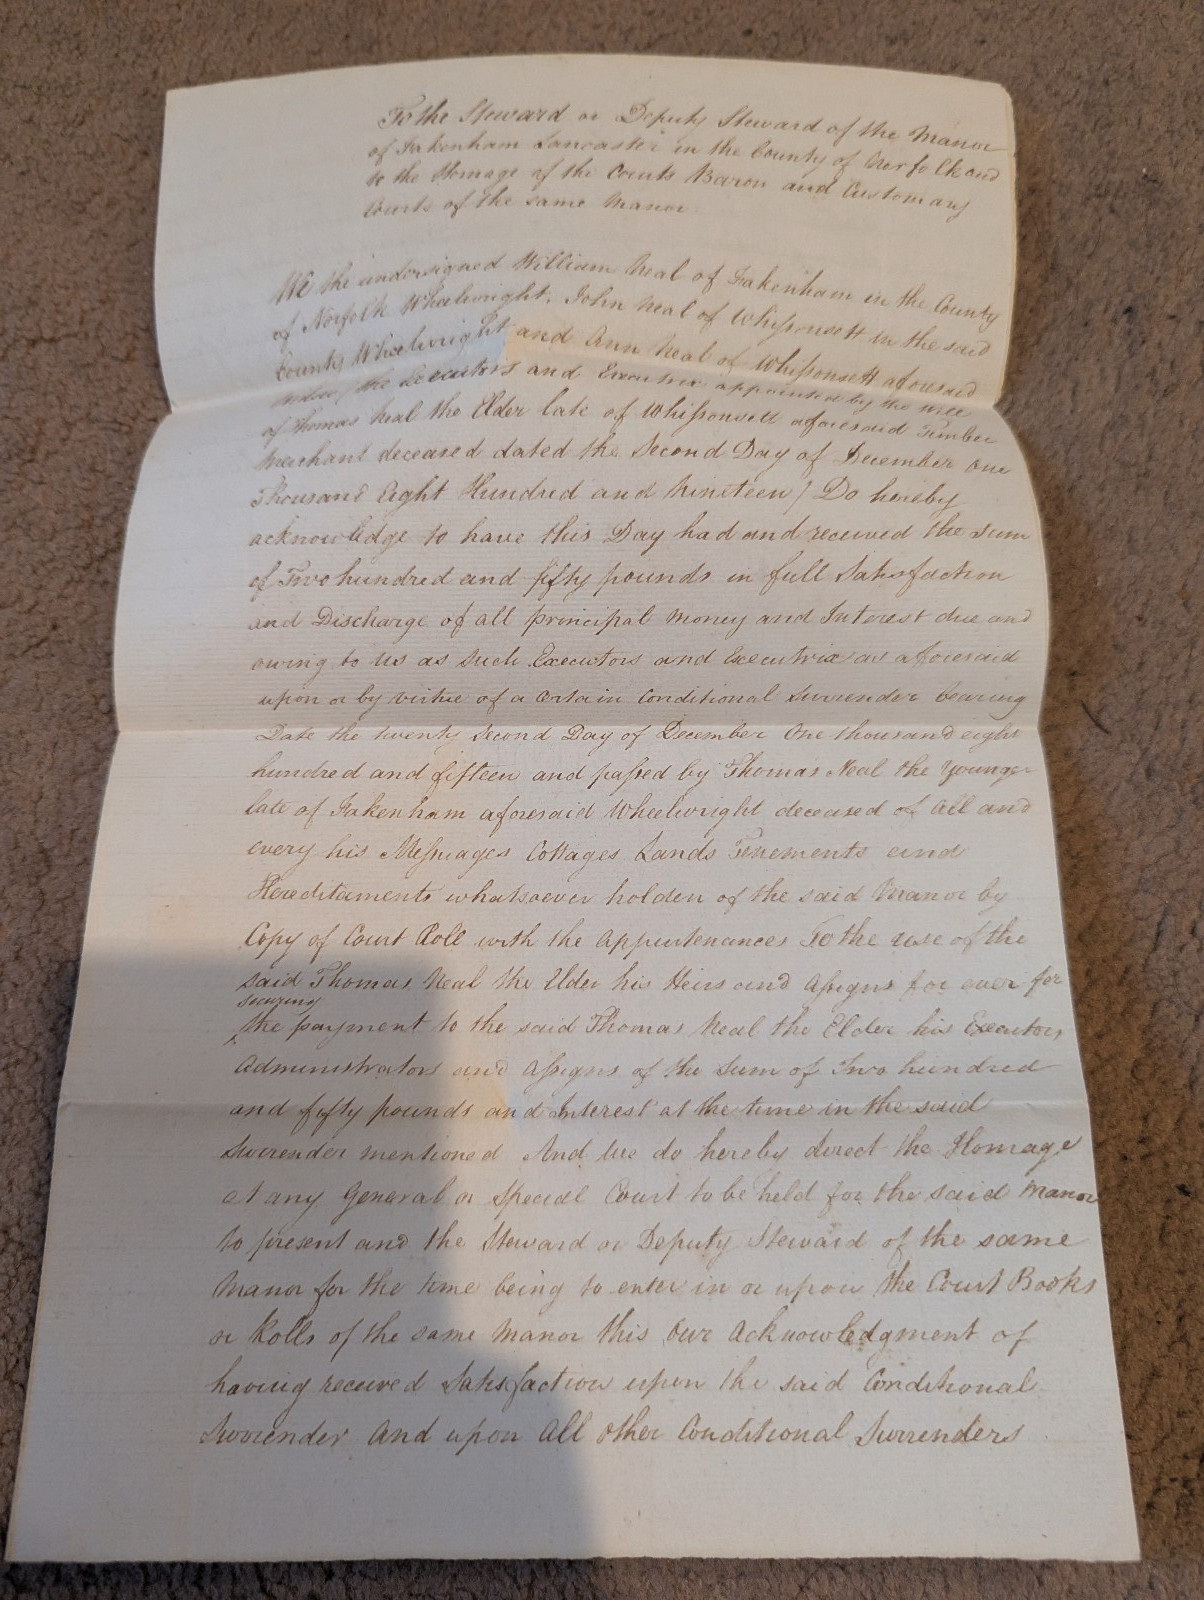 To the Steward or Deputy Steward of the Manor
of Fakenham Lancaster in the County of Norfolk and
to the Homage of the Courts Baron and Customary
Courts of the same Manor
We the undersigned William Neal of Fakenham in the County
of Norfolk Wheelwright, John Neal of Whissonsett in the said
County Wheelwright and Ann Neal of Whissonsett aforesaid
the Executors and Executrix appointed by the Will
of Thomas Neal the Elder late of Whissonsett aforesaid Timber
Merchant deceased dated the Second Day of December One
Thousand Eight Hundred and Nineteen) Do hereby
acknowledge to have this Day had and received the Sum
of Two hundred and fifty pounds in full Satisfaction
and Discharge of all principal Money and Interest due and
owing to Us as Such Executors and Executrix as aforesaid
upon or by virtue of a Certain Conditional Surrender bearing
Date the twenty Second Day of December One thousand eight
hundred and fifteen and passed by Thomas Neal the Younger
late of Fakenham aforesaid Wheelwright deceased of All and
every his Messuages Cottages Lands Tenements and
Hereditaments whatsoever holden of the said Manor by
Copy of Court Roll with the Appurtenances To the use of the
said Thomas Neal the Elder his Heirs and Assigns for ever for
securing
the payment to the said Thomas Neal the Elder his Executors
Administrators and Assigns of the Sum of Two hundred
and fifty pounds and Interest at the time in the said
Surrender mentioned And We do hereby direct the Homage
at any General or Special Court to be held for the said Manor
to present and the Steward or Deputy Steward of the same
Manor for the time being to enter in or upon the Court Books
or Rolls of the same Manor this Our Acknowledgment of
having received Satisfaction upon the said Conditional
Surrender And upon All other Conditional Surrenders